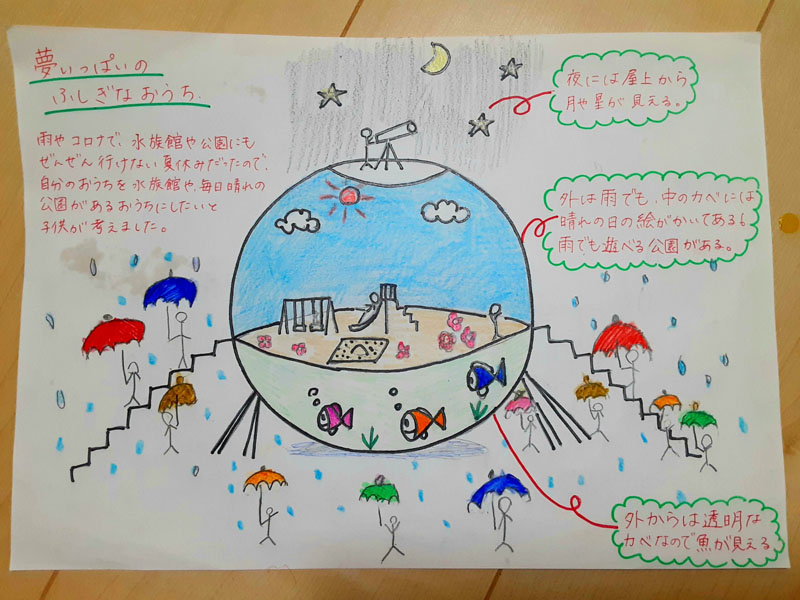 夢いっぱいの
ふしぎなおうち.
雨やコロナで、水族館や公園にも
ぜんぜん行けない夏休みだったので、
自分のおうちを水族館や、毎日晴れの
公園があるおうちにしたいと
子供が考えました。
夜には屋上から
月や星が見える。
外は雨でも、中のカベには
晴れの日の絵がかいてあるら
雨でも遊べる公園がある。
外からは透明な
カベなので魚が見える